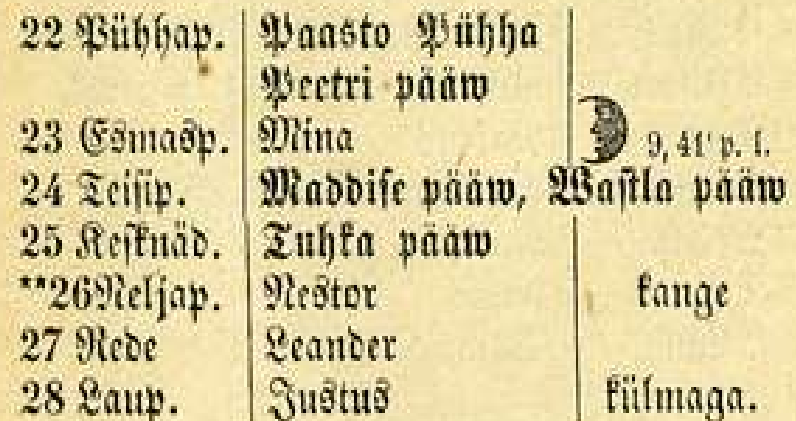 22 Pühhap. Paasto Pühha
Peetri pääw
23 Esmasp. Mina 9, 41' p. l.
24 Teisip. Maddise pääw, Wastla pääw
25 Kesknäd. Tuhka pääw
**26 Neljap. Nestor kange
27 Rede Leander
28 Laup. Justus külmaga.